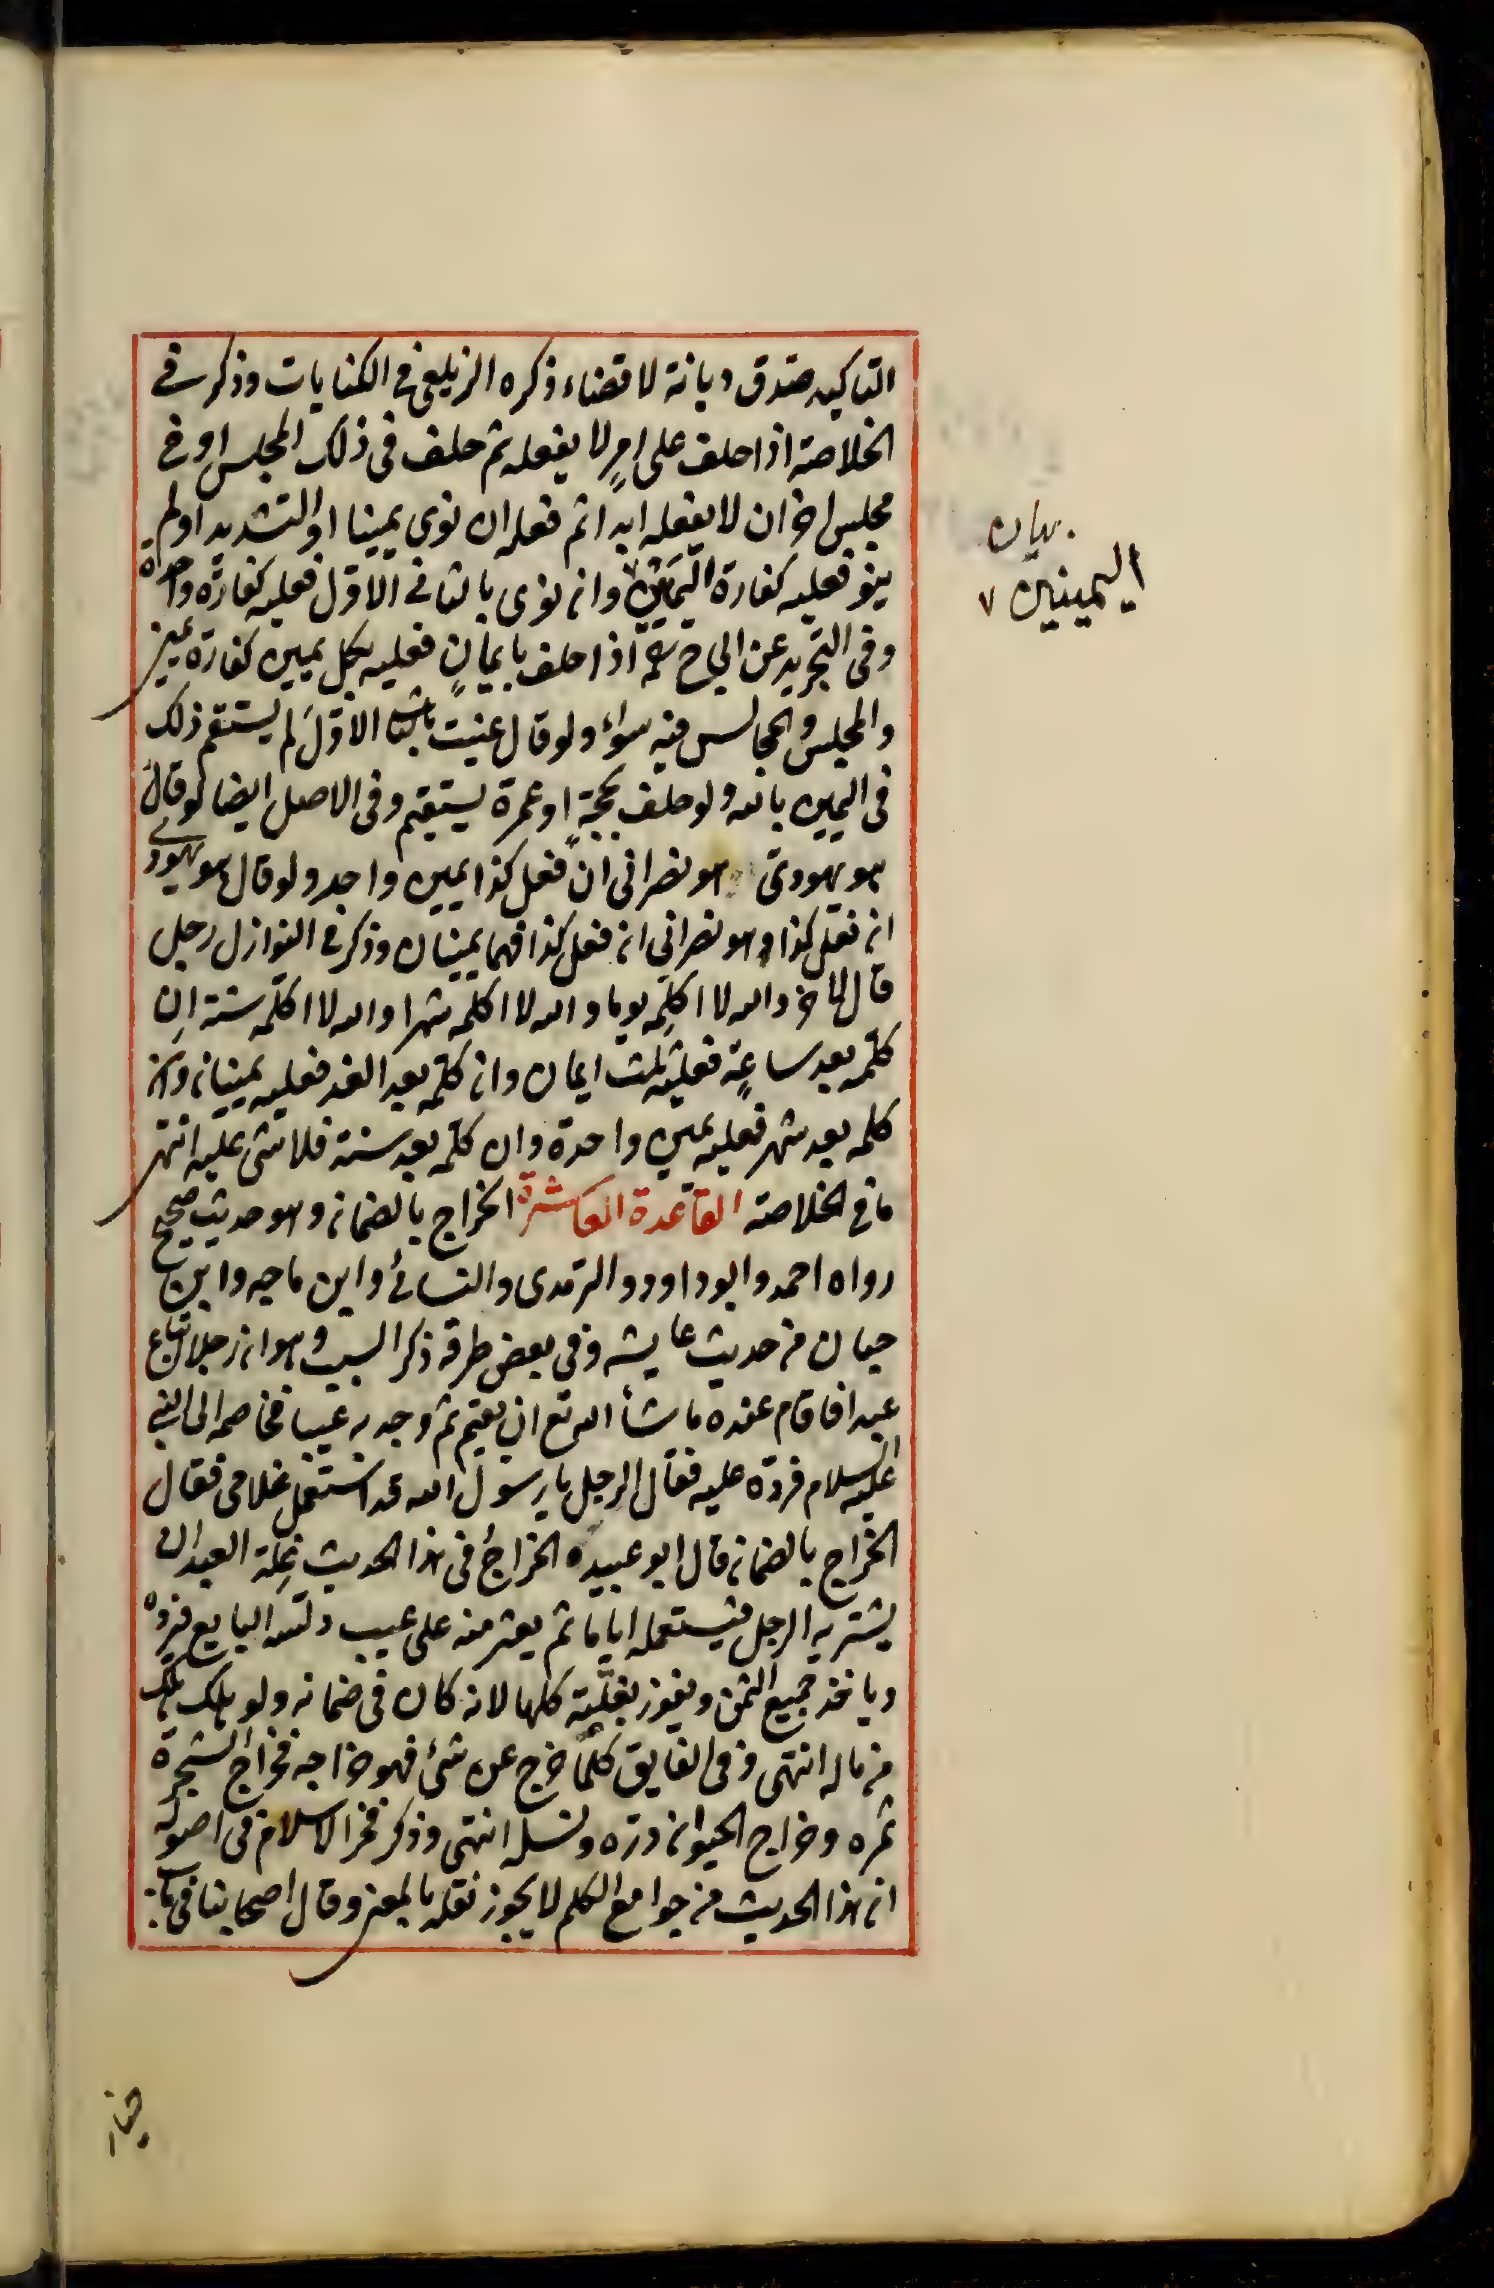 التاكيد صدق ديانة لا قضاء ذكره الزيلعي في الكنايات وذكر في
الخلاصة اذا حلف على امرٍ لا يفعله ثم حلف في ذلك المجلس او في
مجلس اخر ان لا يفعله ابدا ثم فعله ان نوى يمينا او التشديد او لم
ينو فعليه كفارة اليمين وان نوى بالثاني الاول فعليه كفارة واحدة
وفي التجريد عن ابي ح رحمه اذا حلف بايمانٍ فعليه بكل يمين كفارة
والمجلس والمجالس فيه سواء ولو قال عنيت بالثاني الاول لم يستقم ذلك
في اليمين بالله ولو حلف بحجةٍ او عمرة يستقيم وفي الاصل ايضا لو قال
هو يهودي هو نصراني ان فعل كذا يمين واحد ولو قال هو يهودي
ان فعل كذا وهو نصراني ان فعل كذا فهما يمينان وذكر في النوازل رجل
قال لاخر والله لا اكلمه يوما والله لا اكلمه شهرا والله لا اكلمه سنة ان
كلمه بعد ساعة فعليه ثلث ايمان وان كلمه بعد الغد فعليه يمينان وان
كلمه بعد شهر فعليه يمين واحدة وان كلمه بعد سنة فلا شئ عليه انتهى
ما في الخلاصة القاعدة العاشرة الخراج بالضمان وهو حديث صحيح
رواه احمد وابو داود والترمدى والنسائي وابن ماجه وابن
حبان من حديث عايشه وفي بعض طرقه ذكر السبب وهو ان رجلا ابتاع
عبدا فاقام عنده ما شأ الله تع ان يقيم ثم وجد به عيبا فخاصمه الى النبي
عليه السلام فرده عليه فقال الرجل يا رسول الله قد استعمل غلامي فقال
الخراج بالضمان قال ابو عبيده الخراج في هذا الحديث غلة العبد
يشتريه الرجل فيستعمله اياما ثم يعثر منه على عيب دلسه البايع فيرده
وياخذ جميع الثمن ويفوز بغلته كلها لانه كان في ضمانه ولو هلك هلك
من ماله انتهى وفي الفايق كلما خرج عن شئ فهو خراجه فخراج الشجرة
ثمره وخراج الحيوان دره ونسله انتهى وذكر فخر الاسلام في اصوله
ان هذا الحديث من جوامع الكلم لا يجوز نقله بالمعنى وقال اصحابنا في باب
بيان
اليمينين ٧
خيار